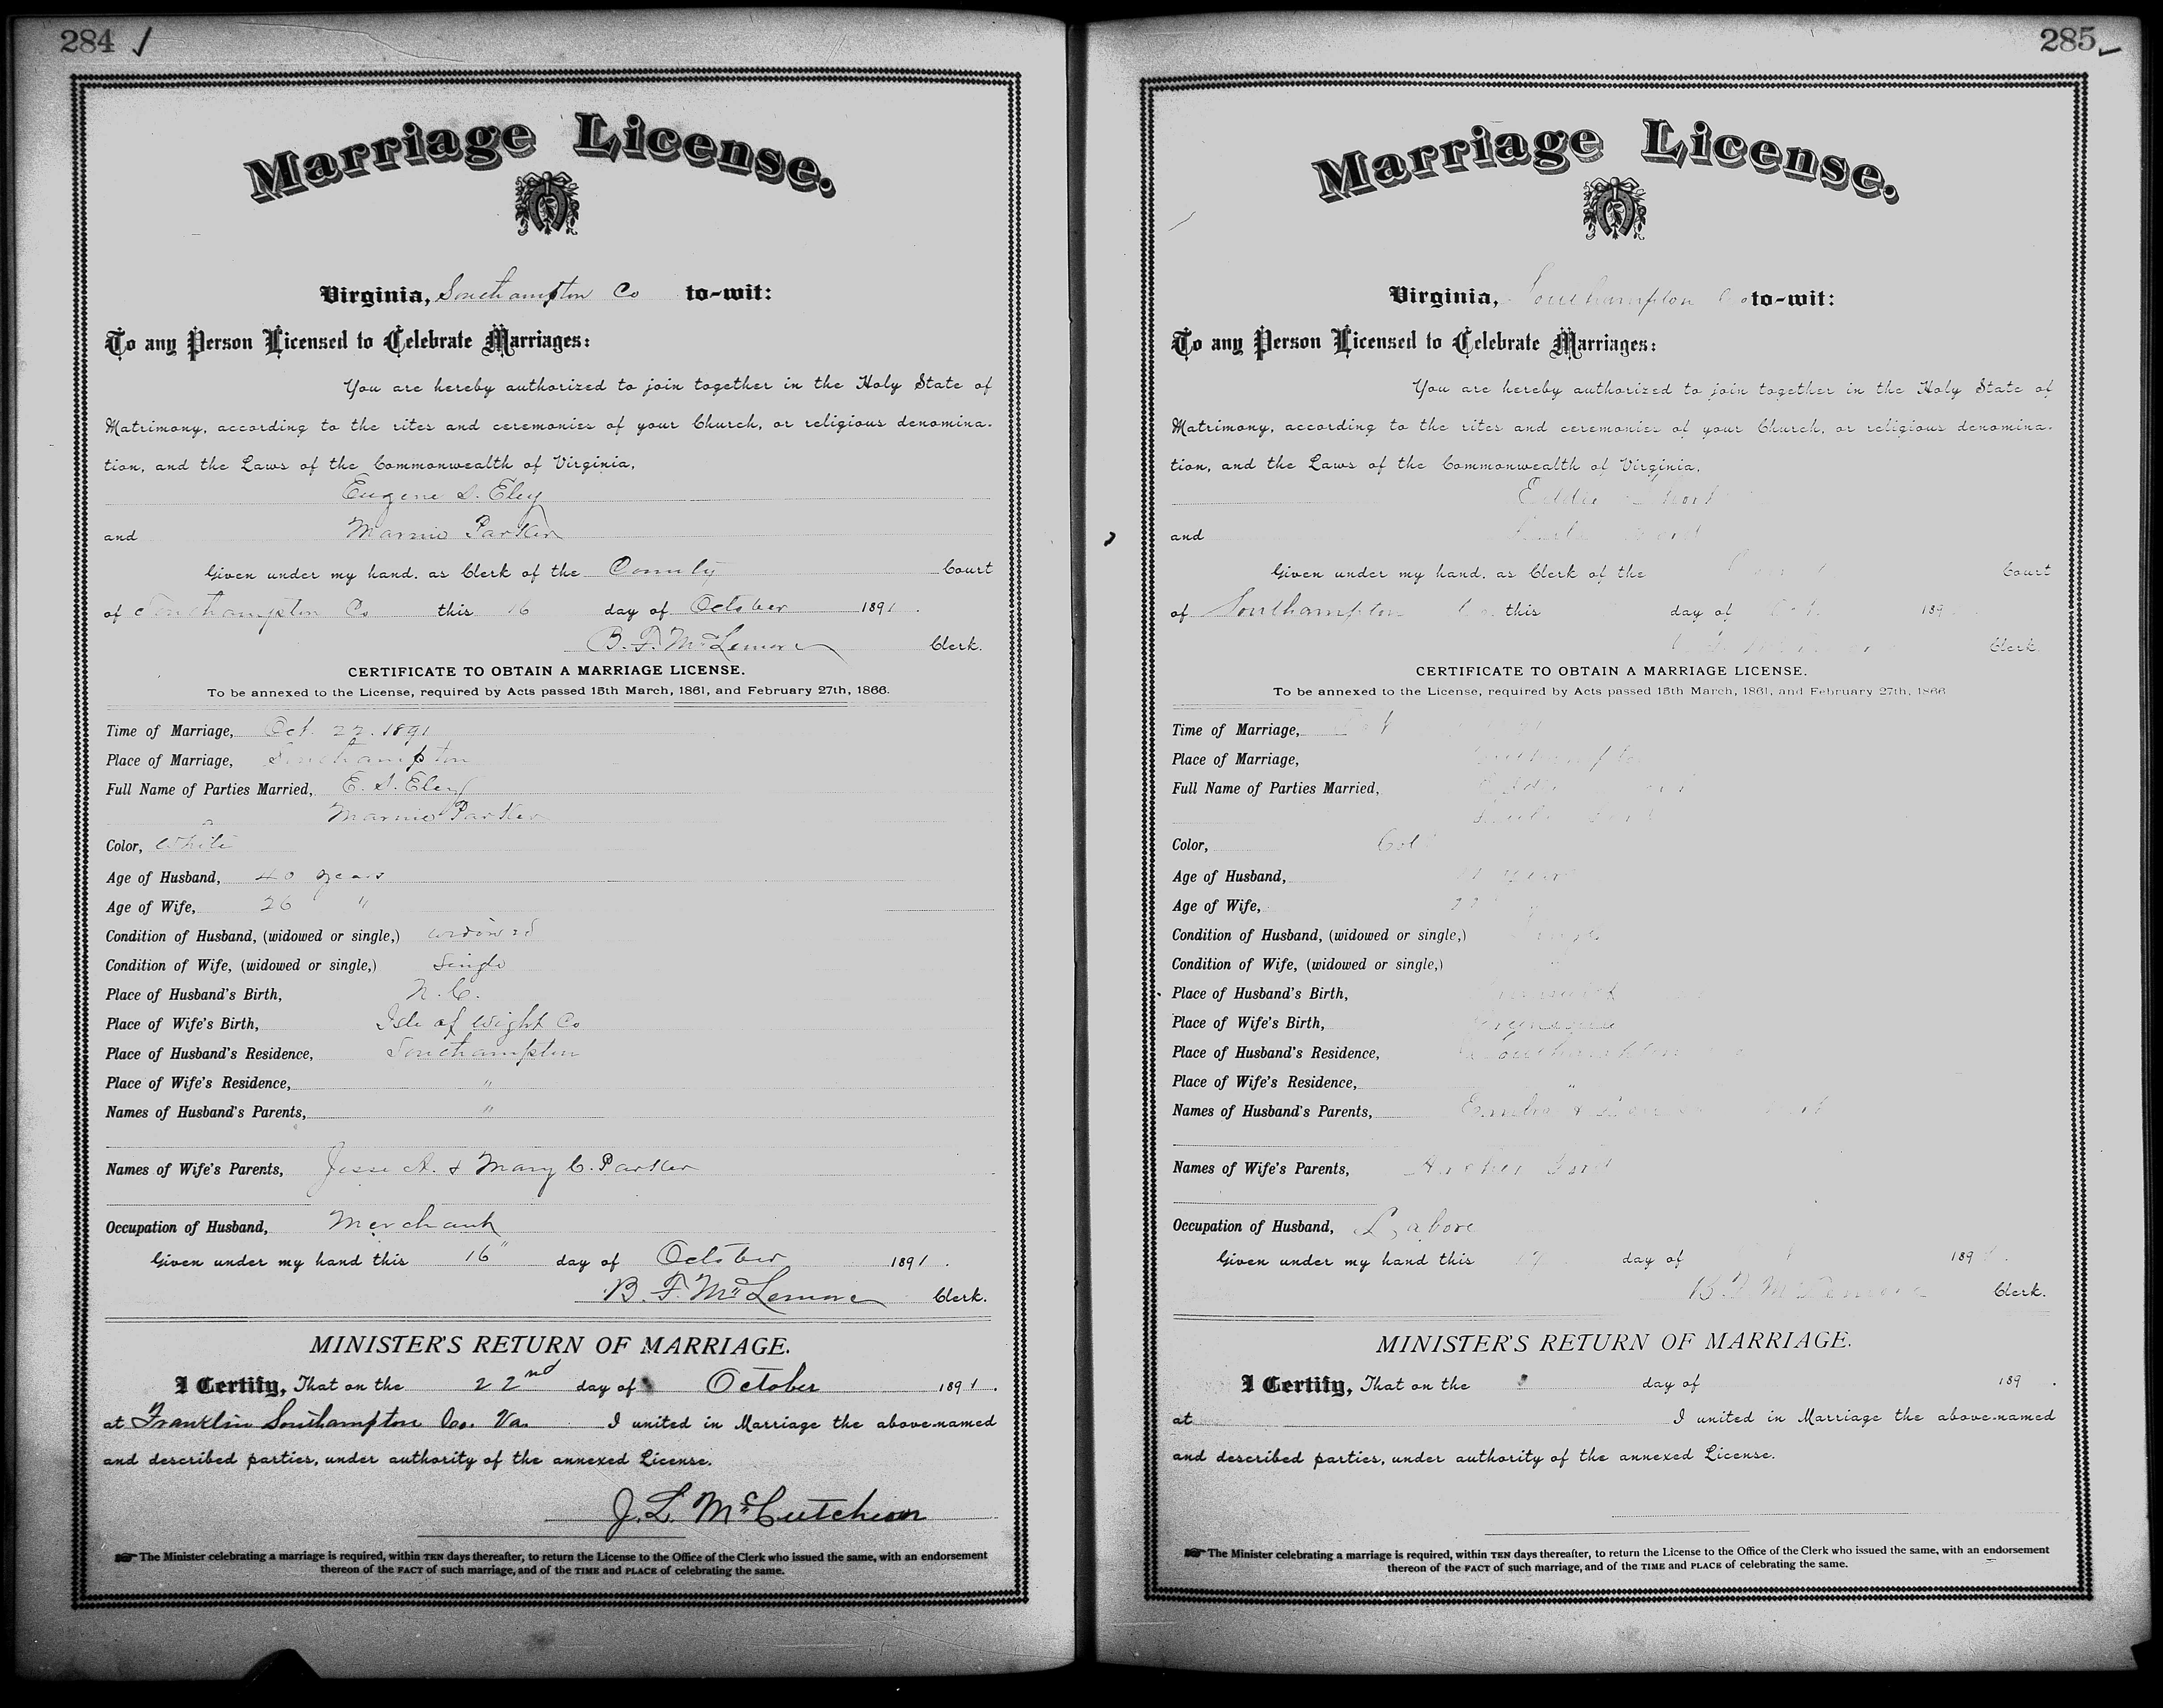 284
Marriage License.
Virginia, Southampton Co to-wit:
To any Person Licensed to Celebrate Marriages:
You are hereby authorized to join together in the Holy State of
Matrimony, according to the rites and ceremonies of your Church, or religious denomina-
tion, and the Laws of the Commonwealth of Virginia,
Eugene S. Eley
and Mamie Parker
Given under my hand, as Clerk of the County Court
of Southampton Co this 16 day of October 1891.
B. F. McLemore Clerk.
CERTIFICATE TO OBTAIN A MARRIAGE LICENSE.
To be annexed to the License, required by Acts passed 15th March, 1861, and February 27th, 1866.
Time of Marriage, Oct. 22. 1891
Place of Marriage, Southampton
Full Name of Parties Married, E. S. Eley
Mamie Parker
Color, White
Age of Husband, 40 years
Age of Wife, 26 "
Condition of Husband, (widowed or single,) widowed
Condition of Wife, (widowed or single,) Single
Place of Husband's Birth, N. C.
Place of Wife's Birth, Isle of Wight Co
Place of Husband's Residence, Southampton
Place of Wife's Residence, "
Names of Husband's Parents, "
Names of Wife's Parents, Jesse A. & Mary C. Parker
Occupation of Husband, Merchant
Given under my hand this 16" day of October 1891.
B. F. McLemore Clerk.
MINISTER'S RETURN OF MARRIAGE.
I Certify, That on the 22nd day of October 1891.
at Franklin Southampton Co. Va. I united in Marriage the above-named
and described parties, under authority of the annexed License.
J. L. McCutcheon
The Minister celebrating a marriage is required, within TEN days thereafter, to return the License to the Office of the Clerk who issued the same, with an endorsement
thereon of the FACT of such marriage, and of the TIME and PLACE of celebrating the same.
285
Marriage License.
Virginia, Southampton Co to-wit:
To any Person Licensed to Celebrate Marriages:
You are hereby authorized to join together in the Holy State of
Matrimony, according to the rites and ceremonies of your Church, or religious denomina-
tion, and the Laws of the Commonwealth of Virginia,
Eddie
and
Given under my hand, as Clerk of the Court
of Southampton Co. this day of 189
Clerk.
CERTIFICATE TO OBTAIN A MARRIAGE LICENSE.
To be annexed to the License, required by Acts passed 15th March, 1861, and February 27th, 1866
Time of Marriage,
Place of Marriage, Southampton
Full Name of Parties Married,
Color, Col
Age of Husband, years
Age of Wife,
Condition of Husband, (widowed or single,) Single
Condition of Wife, (widowed or single,) "
Place of Husband's Birth,
Place of Wife's Birth, Greensville
Place of Husband's Residence, Southampton
Place of Wife's Residence, "
Names of Husband's Parents,
Names of Wife's Parents,
Occupation of Husband, Labore
Given under my hand this 17 day of 189
B. F. McLemore Clerk.
MINISTER'S RETURN OF MARRIAGE.
I Certify, That on the day of 189 .
at I united in Marriage the above-named
and described parties, under authority of the annexed License.
The Minister celebrating a marriage is required, within TEN days thereafter, to return the License to the Office of the Clerk who issued the same, with an endorsement
thereon of the FACT of such marriage, and of the TIME and PLACE of celebrating the same.